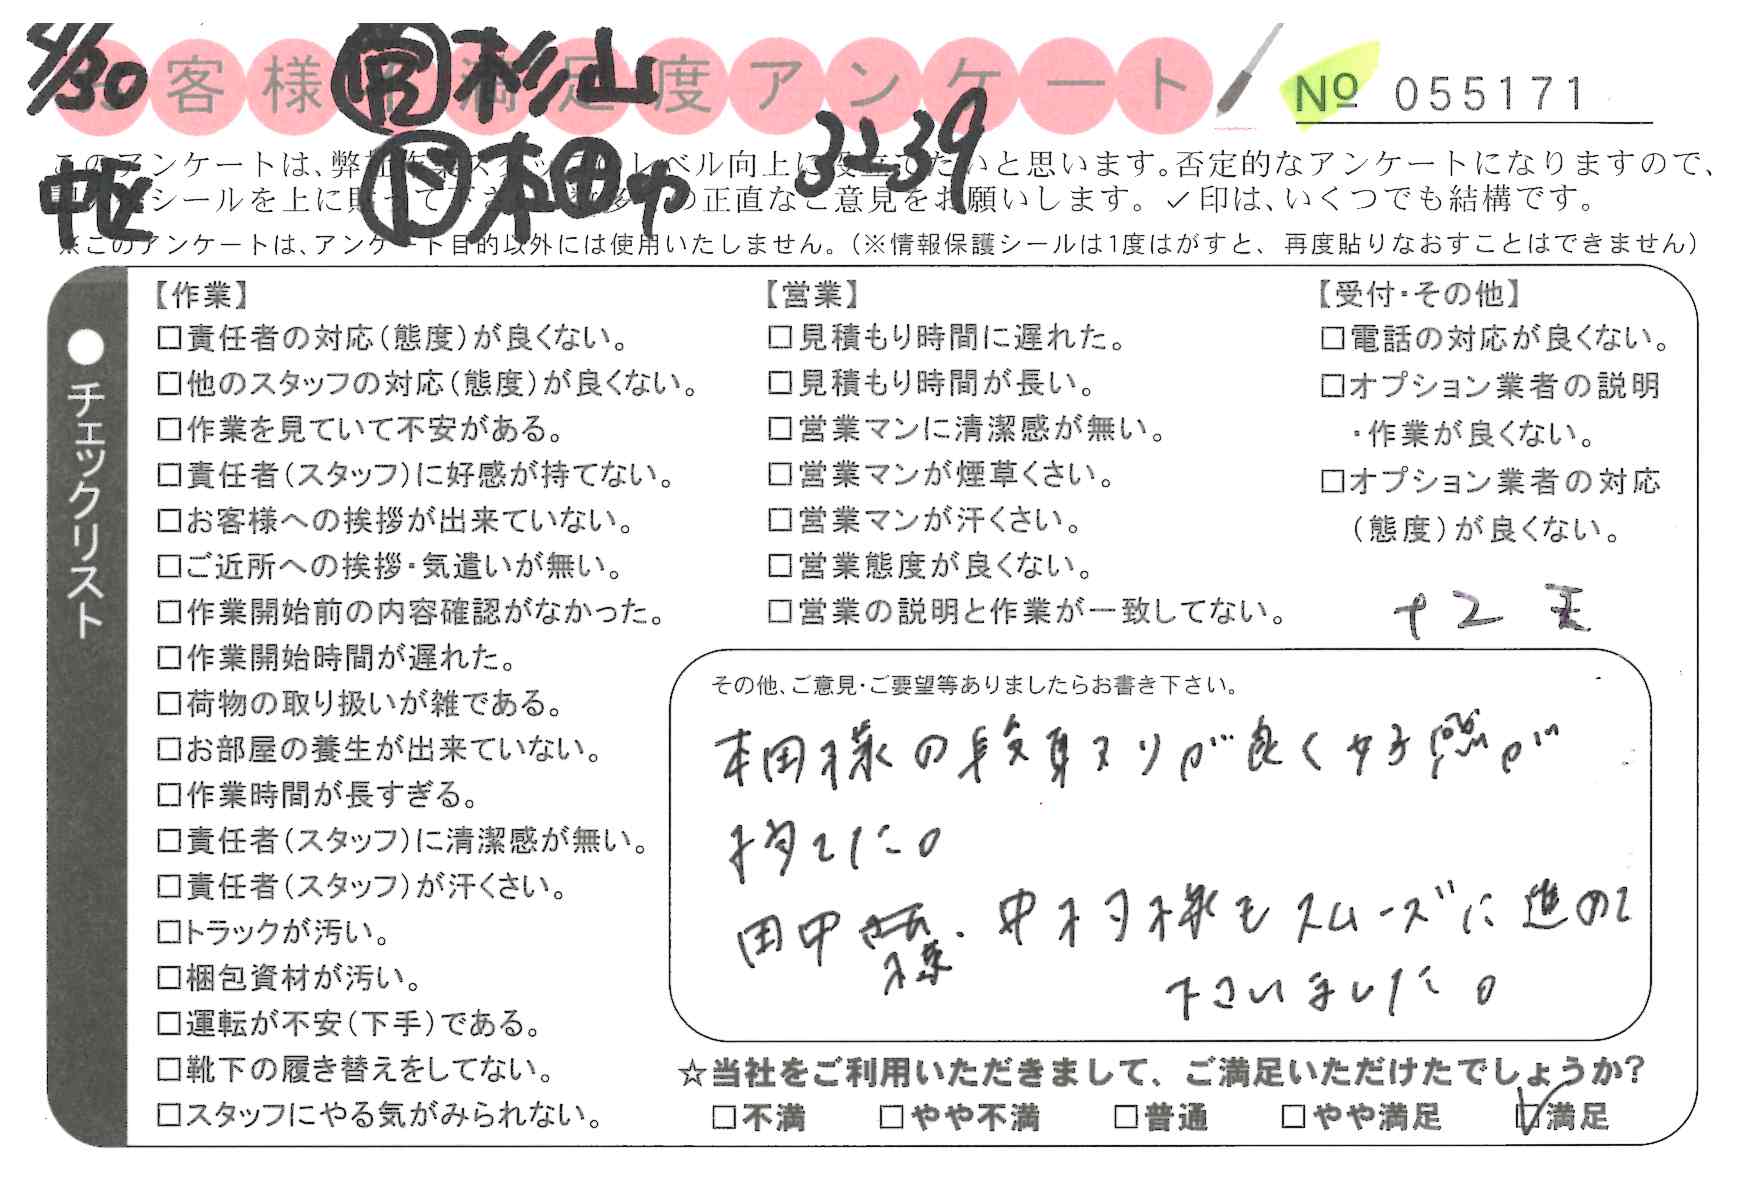 4/30 客様 満足度アンケート
杉山
№ 055171
本田 中
3239
中区
このアンケートは、弊社作業スタッフのレベル向上に役立てたいと思います。否定的なアンケートになりますので、
シールを上に貼って下さい。数多くの正直なご意見をお願いします。✓印は、いくつでも結構です。
※このアンケートは、アンケート目的以外には使用いたしません。(※情報保護シールは1度はがすと、再度貼りなおすことはできません)
●チェックリスト
【作業】
□責任者の対応(態度)が良くない。
□他のスタッフの対応(態度)が良くない。
□作業を見ていて不安がある。
□責任者(スタッフ)に好感が持てない。
□お客様への挨拶が出来ていない。
□ご近所への挨拶・気遣いが無い。
□作業開始前の内容確認がなかった。
□作業開始時間が遅れた。
□荷物の取り扱いが雑である。
□お部屋の養生が出来ていない。
□作業時間が長すぎる。
□責任者(スタッフ)に清潔感が無い。
□責任者(スタッフ)が汗くさい。
□トラックが汚い。
□梱包資材が汚い。
□運転が不安(下手)である。
□靴下の履き替えをしてない。
□スタッフにやる気がみられない。
【営業】
□見積もり時間に遅れた。
□見積もり時間が長い。
□営業マンに清潔感が無い。
□営業マンが煙草くさい。
□営業マンが汗くさい。
□営業態度が良くない。
□営業の説明と作業が一致してない。
【受付・その他】
□電話の対応が良くない。
□オプション業者の説明
・作業が良くない。
□オプション業者の対応
(態度)が良くない。
+2
その他、ご意見・ご要望等ありましたらお書き下さい。
本田様の段取りが良く好感が
持てました。
田中様、中村様もスムーズに進めて
下さいました。
☆当社をご利用いただきまして、ご満足いただけたでしょうか?
□不満 □やや不満 □普通 □やや満足 ☑満足